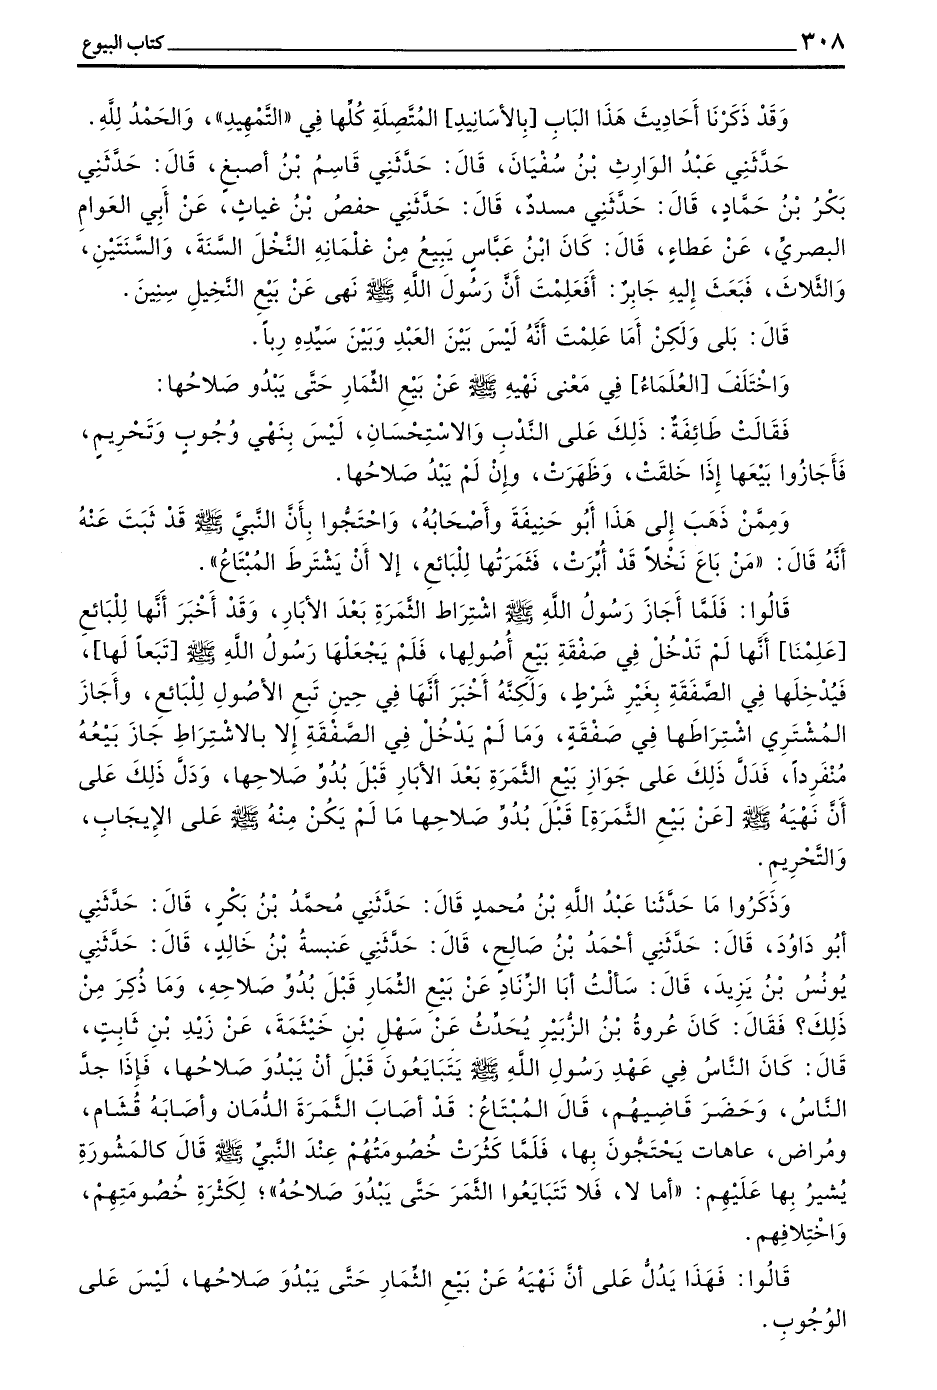 ٣٠٨ كتاب البيوع
وَقَدْ ذَكَرْنَا أَحَادِيثَ هَذَا البَابِ [بِالأسَانِيدِ] المُتَّصِلَةِ كُلِّها فِي «التَّمْهِيدِ»، وَالحَمْدُ لِلَّهِ.
حَدَّثَنِي عَبْدُ الوَارِثِ بْنُ سُفْيَانَ، قَالَ: حَدَّثَنِي قَاسِمُ بْنُ أصبغٍ، قَالَ: حَدَّثَنِي
بَكْرُ بْنُ حَمَّادٍ، قَالَ: حَدَّثَنِي مسددٌ، قَالَ: حَدَّثَنِي حفصُ بْنُ غياثٍ، عَنْ أَبِي العَوامِ
البصريِّ، عَنْ عَطاءٍ، قَالَ: كَانَ ابْنُ عَبَّاسٍ يَبِيعُ مِنْ غلْمَانِهِ النَّخْلَ السَّنَةَ، وَالسَّنَتَيْنِ،
وَالثَّلاثَ، فَبَعَثَ إِليهِ جَابِرٌ: أَفَعَلِمْتَ أَنَّ رَسُولَ اللَّهِ ﷺ نَهى عَنْ بَيْعِ النَّخِيلِ سِنِينَ.
قَالَ: بَلى وَلَكِنْ أَمَا عَلِمْتَ أَنَّهُ لَيْسَ بَيْنَ العَبْدِ وَبَيْنَ سَيِّدِهِ رِباً.
وَاخْتَلَفَ [العُلَمَاءُ] فِي مَعْنى نَهْيِهِ ﷺ عَنْ بَيْعِ الثِّمَارِ حَتَّى يَبْدُو صَلاحُها:
فَقَالَتْ طَائِفَةٌ: ذَلِكَ عَلى النَّدْبِ وَالاسْتِحْسَانِ، لَيْسَ بِنَهْي وُجُوبٍ وَتَحْرِيمٍ،
فَأَجَازُوا بَيْعَها إِذَا خَلقَتْ، وَظَهَرَتْ، وإِنْ لَمْ يَبْدُ صَلاحُها.
وَمِمَّنْ ذَهَبَ إِلى هَذَا أَبُو حَنِيفَةَ وأَصْحَابُهُ، وَاحْتَجُّوا بِأَنَّ النَّبِيَّ ﷺ قَدْ ثَبَتَ عَنْهُ
أَنَّهُ قَالَ: «مَنْ بَاعَ نَخْلاً قَدْ أُبِّرَتْ، فَثَمَرَتُها لِلْبَائعِ، إلا أَنْ يَشْتَرِطَ المُبْتَاعُ».
قَالُوا: فَلَمَّا أَجَازَ رَسُولُ اللَّهِ ﷺ اشْتِرَاطَ الثَّمَرَةِ بَعْدَ الأبَارِ، وَقَدْ أَخْبَرَ أَنَّها لِلْبَائعِ
[عَلِمْنَا] أَنَّها لَمْ تَدْخُلْ فِي صَفْقَةِ بَيْعِ أُصُولِها، فَلَمْ يَجْعَلْهَا رَسُولُ اللَّهِ ﷺ [تَبَعاً لَها]،
فَيُدْخِلَها فِي الصَّفَقَةِ بِغَيْرِ شَرْطٍ، وَلَكِنَّهُ أَخْبَرَ أَنَّهَا فِي حِينِ تَبعِ الأصُولِ لِلْبَائعِ، وأَجَازَ
المُشْتَرِي اشْتِرَاطَها فِي صَفْقَةٍ، وَمَا لَمْ يَدْخُلْ فِي الصَّفْقَةِ إِلا بالاشْتِراطِ جَازَ بَيْعُهُ
مُنْفَرِداً، فَدَلَّ ذَلِكَ عَلى جَوازِ بَيْعِ الثَّمَرَةِ بَعْدَ الأبَارِ قَبْلَ بُدُوِّ صَلاحِها، وَدَلَّ ذَلِكَ عَلى
أَنَّ نَهْيَهُ ﷺ [عَنْ بَيْعِ الثَّمَرَةِ] قَبْلَ بُدُوِّ صَلاحِها مَا لَمْ يَكُنْ مِنْهُ ﷺ عَلى الإِيجَابِ،
وَالتَّحْرِيمِ.
وَذَكَرُوا مَا حَدَّثَنا عَبْدُ اللَّهِ بْنُ مُحمدٍ قَالَ: حَدَّثَنِي مُحمَّدُ بْنُ بَكْرٍ، قَالَ: حَدَّثَنِي
أبُو دَاوُدَ، قَالَ: حَدَّثَنِي أحْمَدُ بْنُ صَالِحٍ، قَالَ: حَدَّثَنِي عَنبسةُ بْنُ خَالِدٍ، قَالَ: حَدَّثَنِي
يُونُسُ بْنُ يَزِيدَ، قَالَ: سَألْتُ أبَا الزِّنَادِ عَنْ بَيْعِ الثِّمَارِ قَبْلَ بُدُوِّ صَلاحِهِ، وَمَا ذُكِرَ مِنْ
ذَلِكَ؟ فَقَالَ: كَانَ عُروةُ بْنُ الزُّبَيْرِ يُحَدِّثُ عَنْ سَهْلِ بْنِ خَيْثَمَةَ، عَنْ زَيْدِ بْنِ ثَابِتٍ،
قَالَ: كَانَ النَّاسُ فِي عَهْدِ رَسُولِ اللَّهِ ﷺ يَتَبَايَعُونَ قَبْلَ أنْ يَبْدُوَ صَلاحُها، فَإِذَا جدَّ
النَّاسُ، وَحَضَرَ قَاضِيهُم، قَالَ المُبْتَاعُ: قَدْ أصَابَ الثَّمَرَةَ الدُّمَان وأصَابَهُ قُشَام،
ومُراض، عاهات يَحْتَجُّونَ بِها، فَلَمَّا كَثُرَتْ خُصُومَتُهُمْ عِنْدَ النَّبِيِّ ﷺ قَالَ كالمَشُورَةِ
يُشيرُ بِها عَلَيْهِم: «أما لا، فَلا تَتَبَايَعُوا الثَّمَرَ حَتَّى يَبْدُوَ صَلاحُهُ»؛ لِكَثْرَةِ خُصُومَتِهِمْ،
وَاخْتِلافِهِم.
قَالُوا: فَهَذَا يَدُلُّ عَلى أنَّ نَهْيَهُ عَنْ بَيْعِ الثِّمَارِ حَتَّى يَبْدُوَ صَلاحُها، لَيْسَ عَلى
الوُجُوبِ.